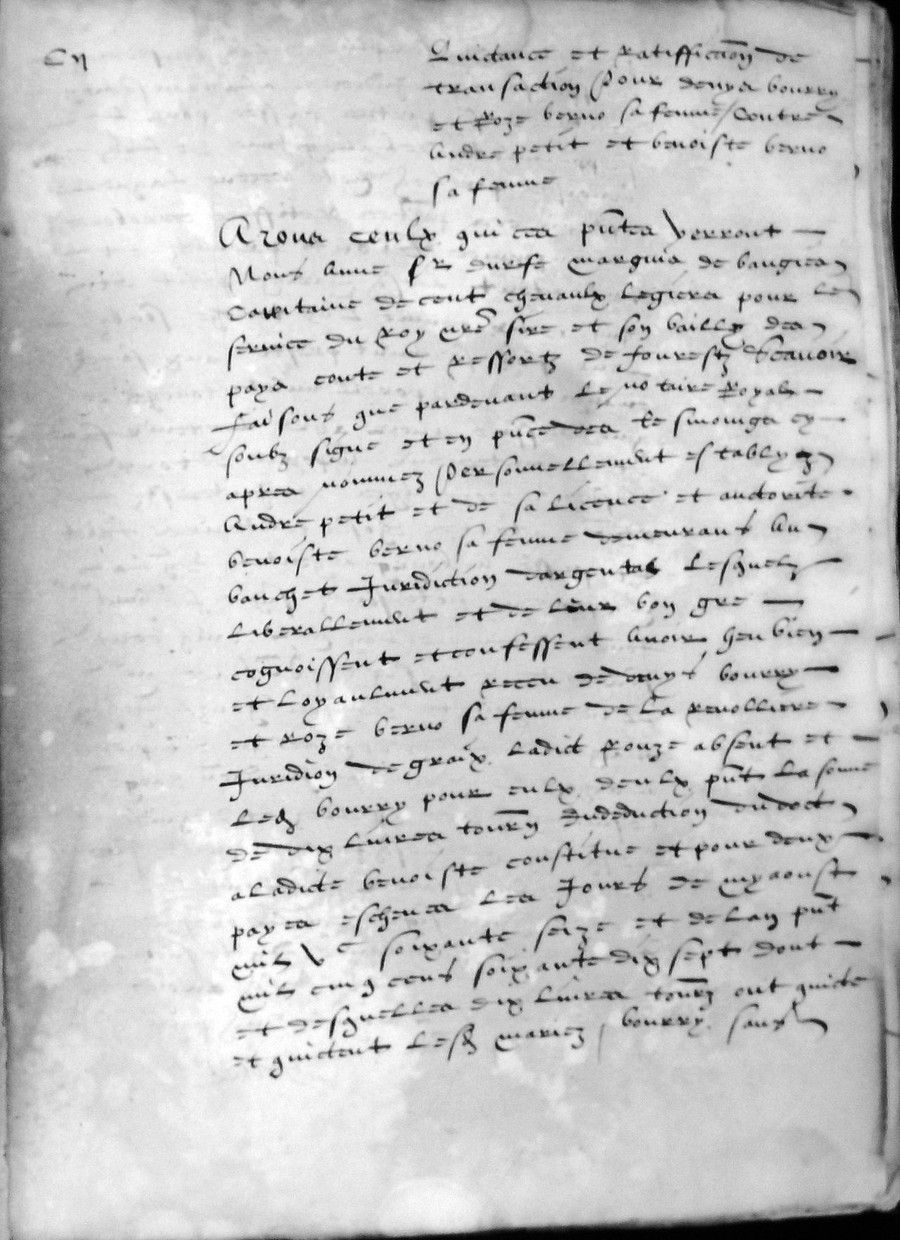 C ii
Quictance et Ratiffica͠on de
transaction pour denys bourry
et Roze berno sa femme / Contre
Andre petit et benoiste berno
sa femme
A Tous ceulx qui ces pñtes verront
Nous Anne Sr durfe marquis de baugies
Cappitaine de cent chevaulx legiers pour le
service du Roy nre͠ sire et son bailly des
pays conte et ressortz de fourestz Scavoir
faisons que pardevant le notaire Royal
soubz signe et en pñce des tesmoings cy
apres nommez personnellement establyz
Andre petit et de sa licence et auctorite
benoiste berno sa femme demeurans au
bauchet Juridiction dargental Lesquelz
liberallement et de leur bon gre
cognoissent et confessent avoir heu bien
et loyaulment receu de denys bourry
et Roze berno sa femme de la Revolliere
Juridion de graix ladict Rouze absent et
led bourry pour eulx deulx pñt la somme
de dix livres tourn deduction du doct
a ladicte benoiste constitue et pour deux
payes escheues les Jours de myaoust
mil Vc soixante seize et de lan pñt
mil cinq cens soixante dix sept dont
et desquelles dix livres tourn ont quicte
et quictent lesd mariez bourry sans